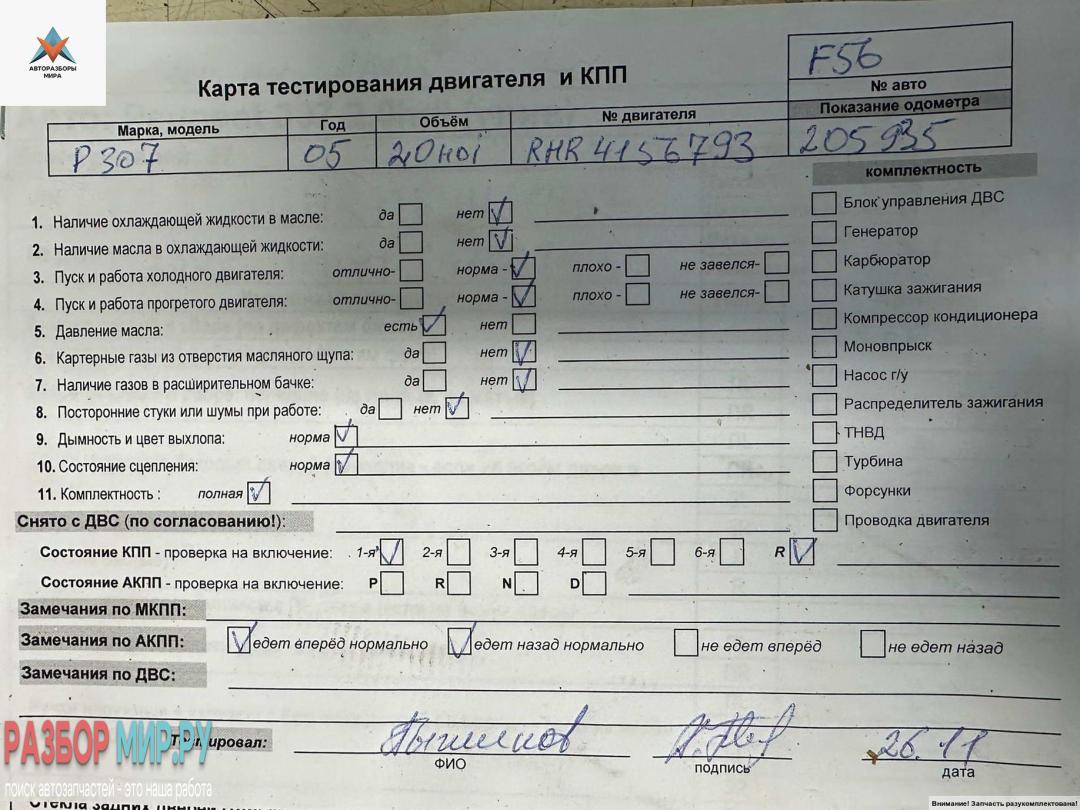 АВТОРАЗБОРЫ
МИРА
F56
Карта тестирования двигателя и КПП
№ авто
Марка, модель Год Объём № двигателя Показание одометра
P 307 05 2,0HDi RHR 4156793 205935
комплектность
1. Наличие охлаждающей жидкости в масле: да нет
Блок управления ДВС
2. Наличие масла в охлаждающей жидкости: да нет
Генератор
3. Пуск и работа холодного двигателя: отлично- норма - плохо - не завелся-
Карбюратор
4. Пуск и работа прогретого двигателя: отлично- норма - плохо - не завелся-
Катушка зажигания
5. Давление масла: есть нет
Компрессор кондиционера
6. Картерные газы из отверстия масляного щупа: да нет
Моновпрыск
7. Наличие газов в расширительном бачке: да нет
Насос г/у
8. Посторонние стуки или шумы при работе: да нет
Распределитель зажигания
9. Дымность и цвет выхлопа: норма
ТНВД
10. Состояние сцепления: норма
Турбина
11. Комплектность : полная
Форсунки
Снято с ДВС (по согласованию!):
Проводка двигателя
Состояние КПП - проверка на включение: 1-я 2-я 3-я 4-я 5-я 6-я R
Состояние АКПП - проверка на включение: P R N D
Замечания по МКПП:
Замечания по АКПП: едет вперёд нормально едет назад нормально не едет вперёд не едет назад
Замечания по ДВС:
Тестировал: 26.11
ФИО подпись дата
РАЗБОР МИР.РУ
поиск автозапчастей - это наша работа
Внимание! Запчасть разукомплектована!